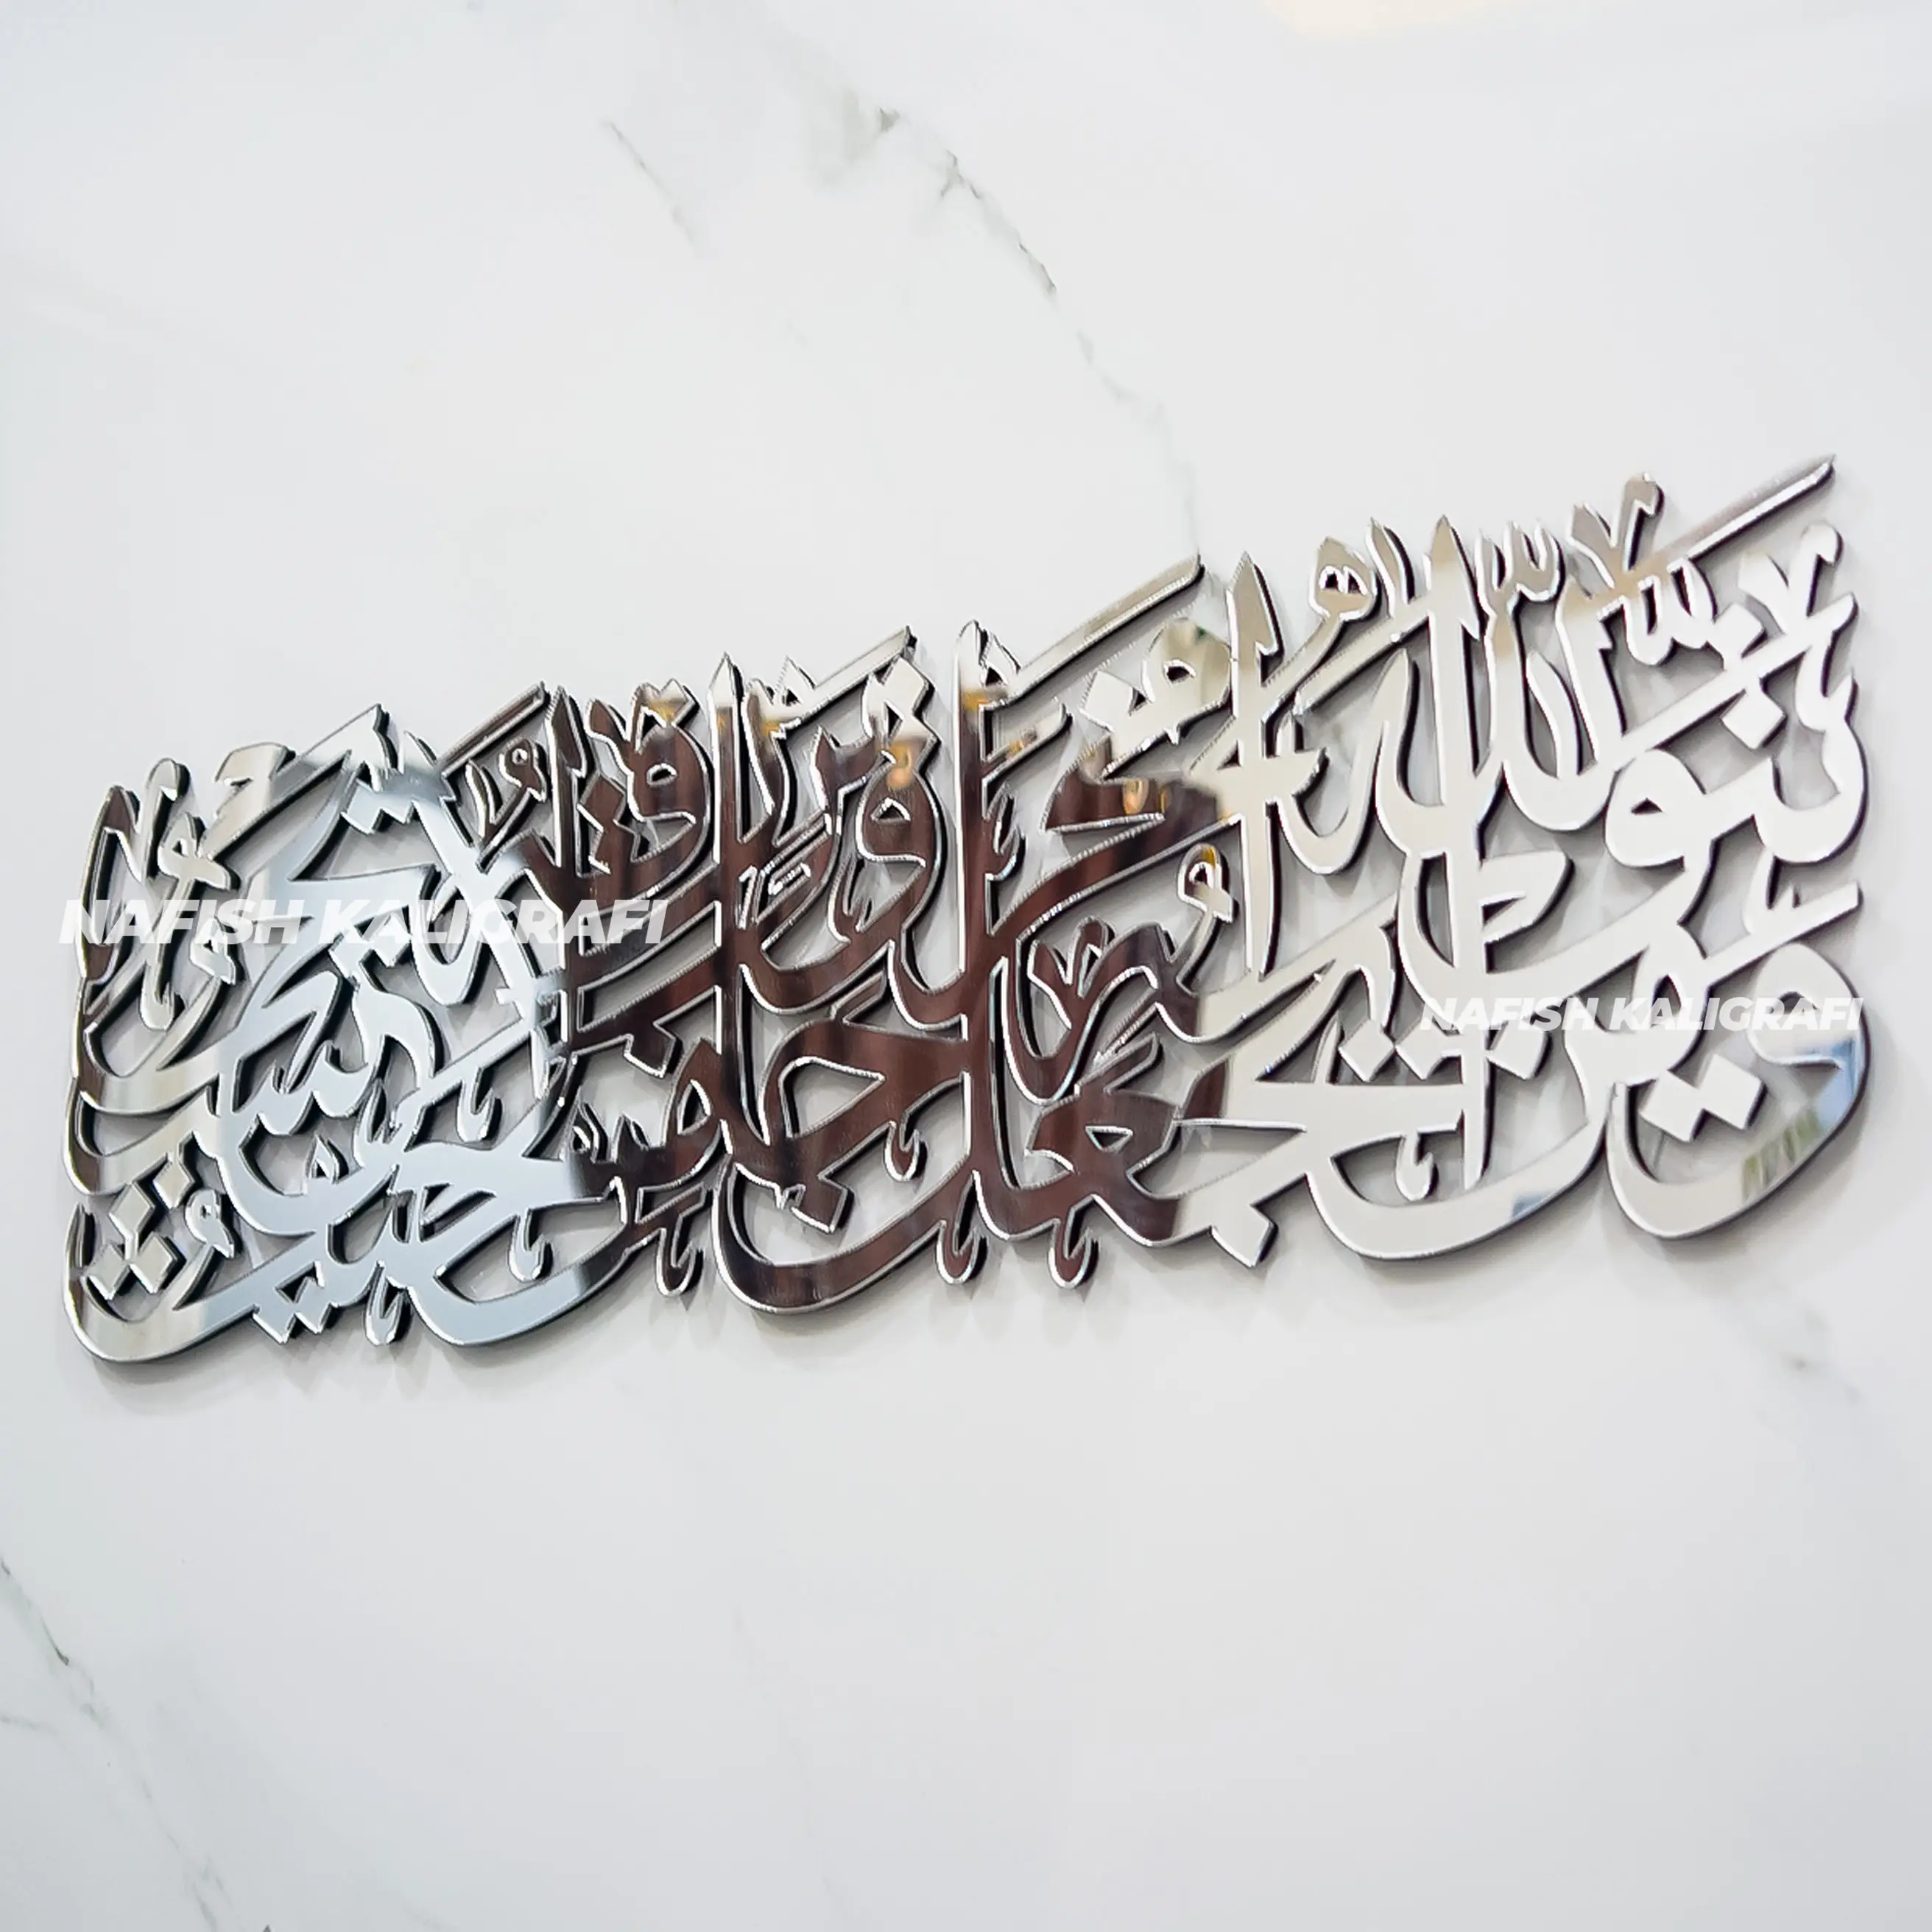 ومن يتق الله يجعل له مخرجا ويرزقه من حيث لا يحتسب
NAFISH KALIGRAFI
NAFISH KALIGRAFI